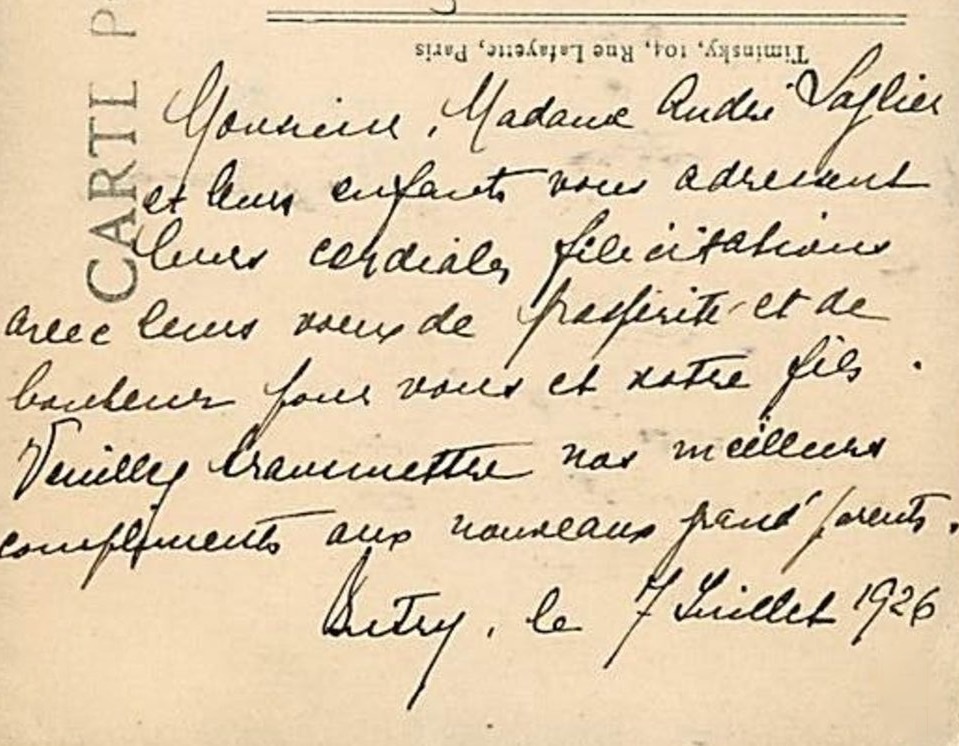 CARTE P
Timinsky, 104, Rue Lafayette, Paris
Monsieur, Madame André Laglier
et leurs enfants vous adressent
leurs cordiales félicitations
avec leurs voeux de prospérité et de
bonheur pour vous et notre fils.
Veuillez transmettre nos meilleurs
compliments aux nouveaux grand' parents.
Autry, le 7 Juillet 1926